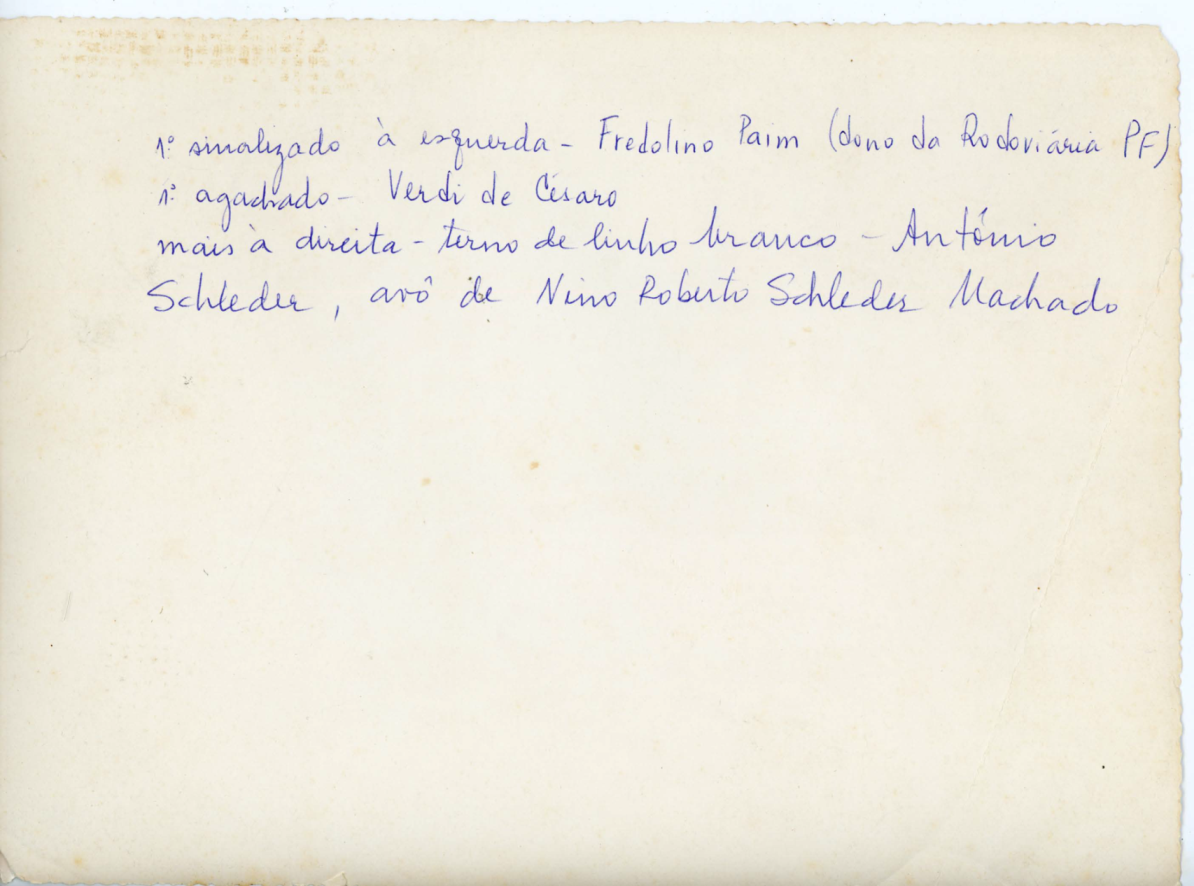 1º sinalizado à esquerda - Fredolino Paim (dono da Rodoviária PF)
1º agachado - Verdi de Césaro
mais à direita - terno de linho branco - Antônio
Schleder, avô de Nino Roberto Schleder Machado